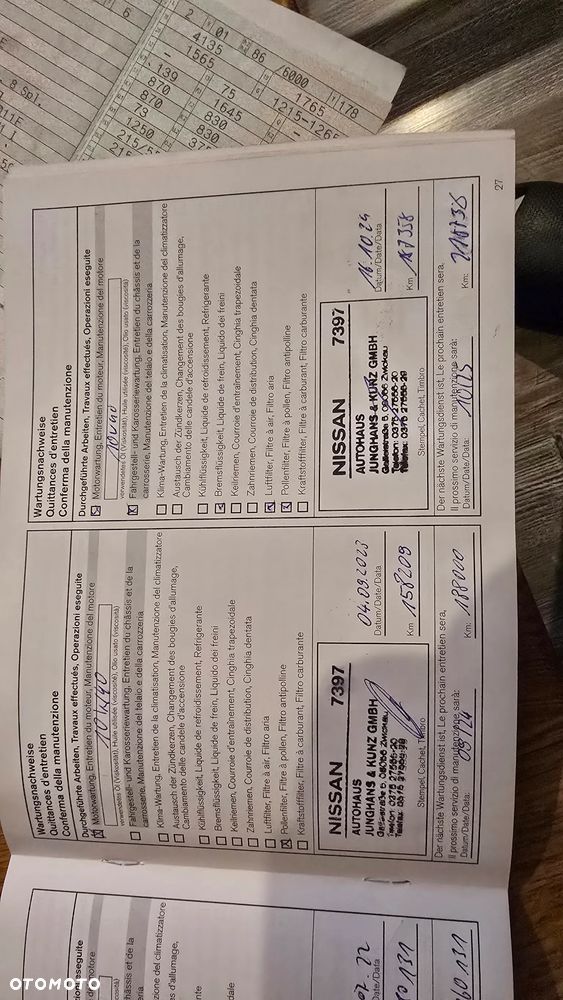 6
2 01 86
4135 6000 178
1565 1765
139 75 1215-1265
870 1645
870 830
73 830
1250
8 Spl.
Wartungsnachweise
Quittances d'entretien
Conferma della manutenzione
Durchgeführte Arbeiten, Travaux effectués, Operazioni eseguite
Motorwartung, Entretien du moteur, Manutenzione del motore
10W40
verwendetes Öl (Viskosität), Huile utilisée (viscosité), Olio usato (viscosità)
Fahrgestell- und Karosseriewartung, Entretien du châssis et de la
carrosserie, Manutenzione del telaio e della carrozzeria
Klima-Wartung, Entretien de la climatisation, Manutenzione del climatizzatore
Austausch der Zündkerzen, Changement des bougies d'allumage,
Cambiamento delle candele d'accensione
Kühlflüssigkeit, Liquide de refroidissement, Refrigerante
Bremsflüssigkeit, Liquide de frein, Liquido dei freini
Keilriemen, Courroie d'entraînement, Cinghia trapezoidale
Zahnriemen, Courroie de distribution, Cinghia dentata
Luftfilter, Filtre à air, Filtro aria
Pollenfilter, Filtre à pollen, Filtro antipolline
Kraftstofffilter, Filtre à carburant, Filtro carburante
NISSAN 7397
AUTOHAUS
JUNGHANS & KUNZ GMBH
Stempel, Cachet, Timbro
04.09.2023
Datum/Date/Data
Km 158209
Der nächste Wartungsdienst ist, Le prochain entretien sera,
Il prossimo servizio di manutenzione sarà:
Datum/Date/Data: 09/24 Km: 188000
Wartungsnachweise
Quittances d'entretien
Conferma della manutenzione
Durchgeführte Arbeiten, Travaux effectués, Operazioni eseguite
Motorwartung, Entretien du moteur, Manutenzione del motore
10W40
verwendetes Öl (Viskosität), Huile utilisée (viscosité), Olio usato (viscosità)
Fahrgestell- und Karosseriewartung, Entretien du châssis et de la
carrosserie, Manutenzione del telaio e della carrozzeria
Klima-Wartung, Entretien de la climatisation, Manutenzione del climatizzatore
Austausch der Zündkerzen, Changement des bougies d'allumage,
Cambiamento delle candele d'accensione
Kühlflüssigkeit, Liquide de refroidissement, Refrigerante
Bremsflüssigkeit, Liquide de frein, Liquido dei freini
Keilriemen, Courroie d'entraînement, Cinghia trapezoidale
Zahnriemen, Courroie de distribution, Cinghia dentata
Luftfilter, Filtre à air, Filtro aria
Pollenfilter, Filtre à pollen, Filtro antipolline
Kraftstofffilter, Filtre à carburant, Filtro carburante
NISSAN 7397
AUTOHAUS
JUNGHANS & KUNZ GMBH
Stempel, Cachet, Timbro
16.10.24
Datum/Date/Data
Km
Der nächste Wartungsdienst ist, Le prochain entretien sera,
Il prossimo servizio di manutenzione sarà:
Datum/Date/Data: 10/25 Km:
27
OTOMOTO